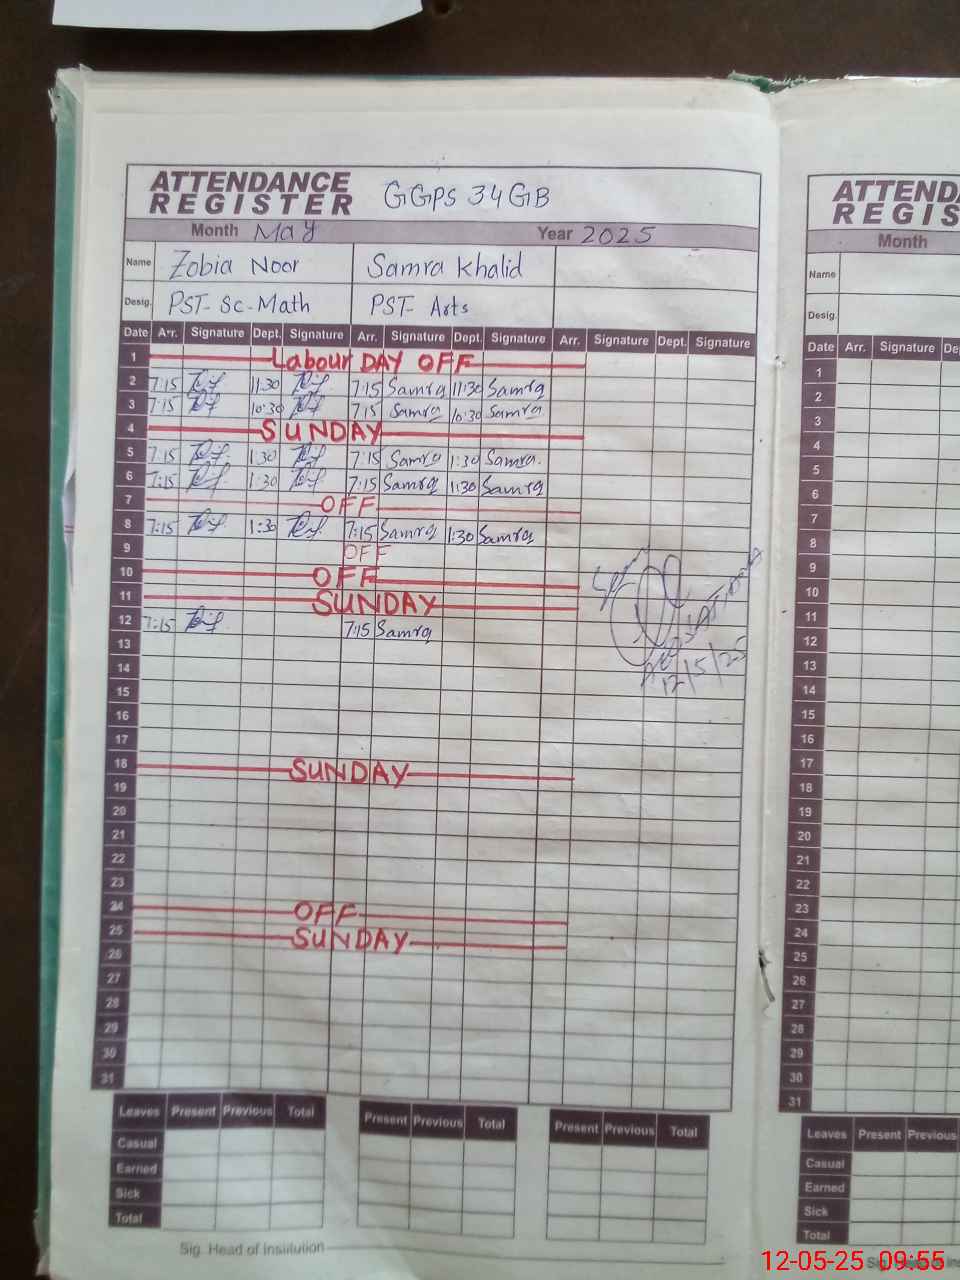 ATTENDANCE REGISTER GGPS 34GB
Month May Year 2025
Name Zobia Noor Samra Khalid
Desig. PST- Sc-Math PST- Arts
Date Arr. Signature Dept. Signature Arr. Signature Dept. Signature Arr. Signature Dept. Signature
1 Labour DAY OFF
2 7:15 11:30 7:15 Samra 11:30 Samra
3 7:15 10:30 7:15 Samra 10:30 Samra
4 SUNDAY
5 7:15 1:30 7:15 Samra 1:30 Samra.
6 7:15 1:30 7:15 Samra 1:30 Samra
7 OFF
8 7:15 1:30 7:15 Samra 1:30 Samra
9 OFF
10 OFF
11 SUNDAY
12 7:15 7:15 Samra
13
14
15
16
17
18 SUNDAY
19
20
21
22
23
24 OFF
25 SUNDAY
26
27
28
29
30
31
12/5/25
Leaves Present Previous Total Present Previous Total Present Previous Total
Casual
Earned
Sick
Total
Sig. Head of Institution
ATTENDA
REGIS
Month
Name
Desig.
Date Arr. Signature De
1
2
3
4
5
6
7
8
9
10
11
12
13
14
15
16
17
18
19
20
21
22
23
24
25
26
27
28
29
30
31
Leaves Present Previous
Casual
Earned
Sick
Total
12-05-25 09:55